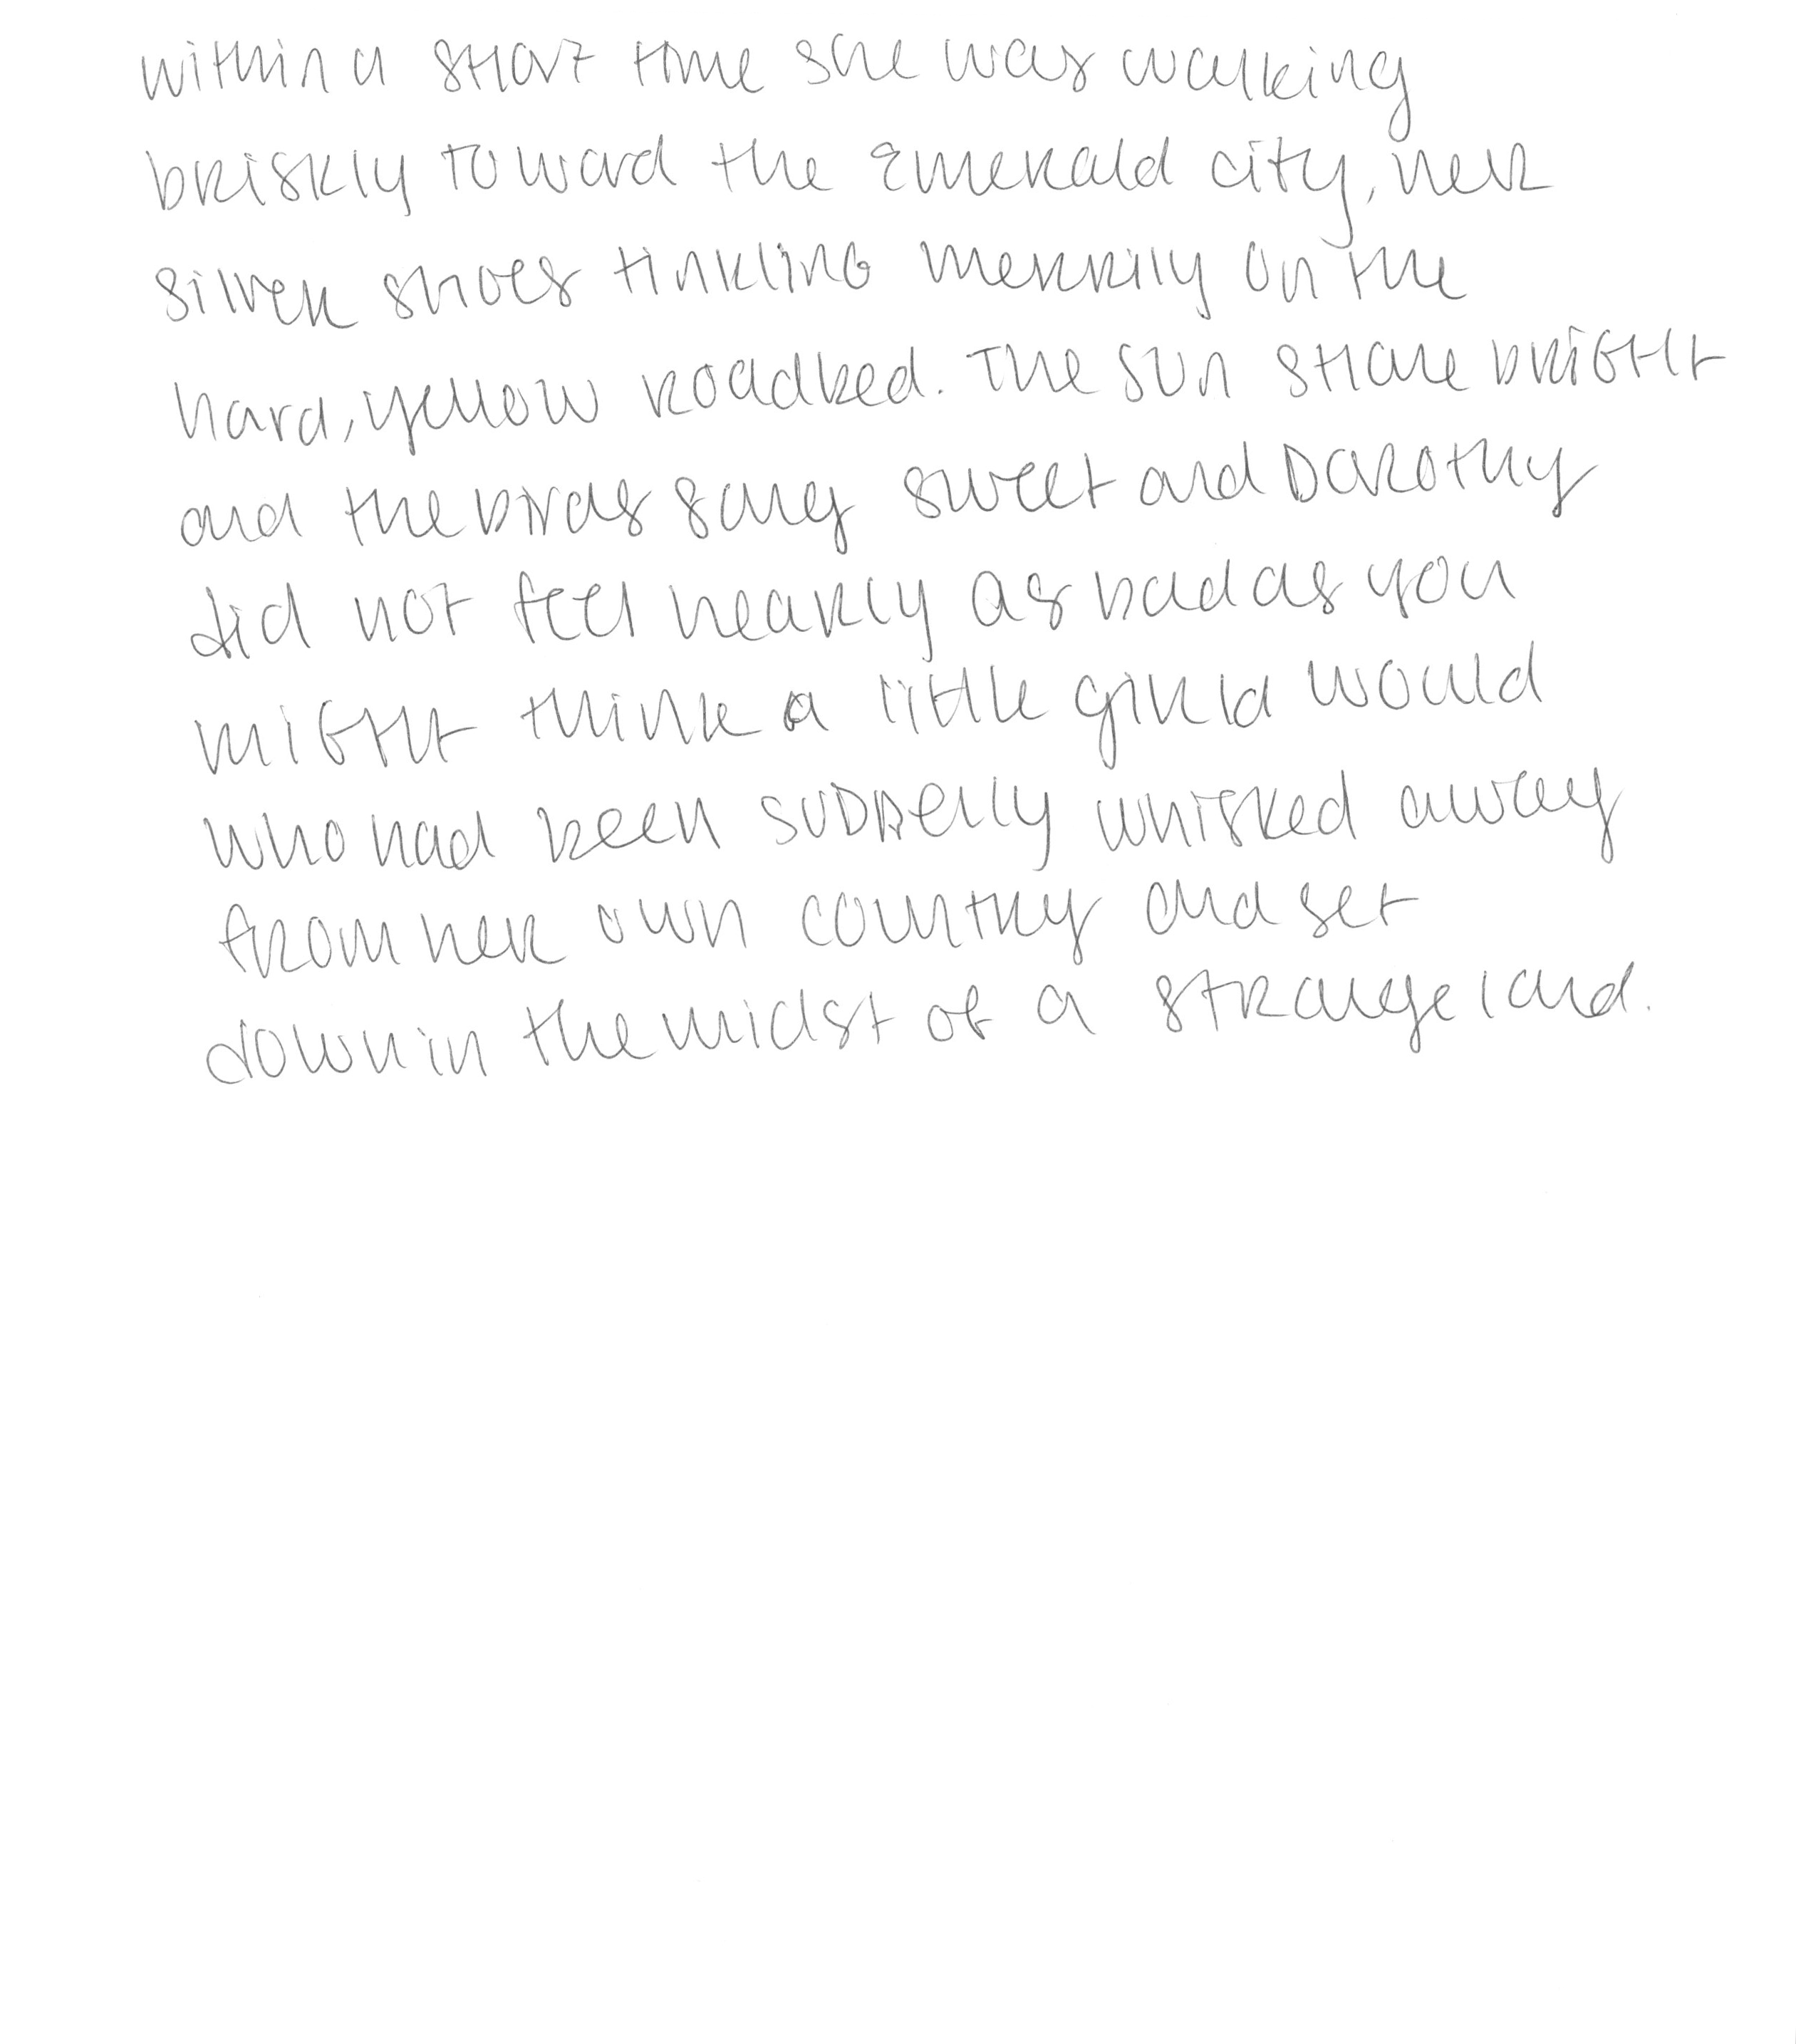 within a short time she was walking
briskly toward the Emerald city, her
silver shoes tinkling merrily on the
hard, yellow roadbed. The sun shone bright
and the birds sang sweet and Dorothy
did not feel nearly as bad as you
might think a little girl would
who had been suddenly whisked away
from her own country and set
down in the midst of a strange land.